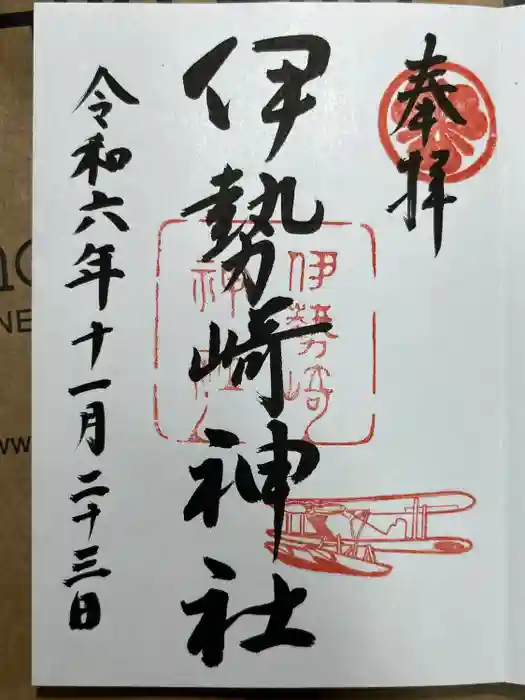 奉拝
伊勢崎神社
伊勢崎
神社
令和六年十一月二十三日